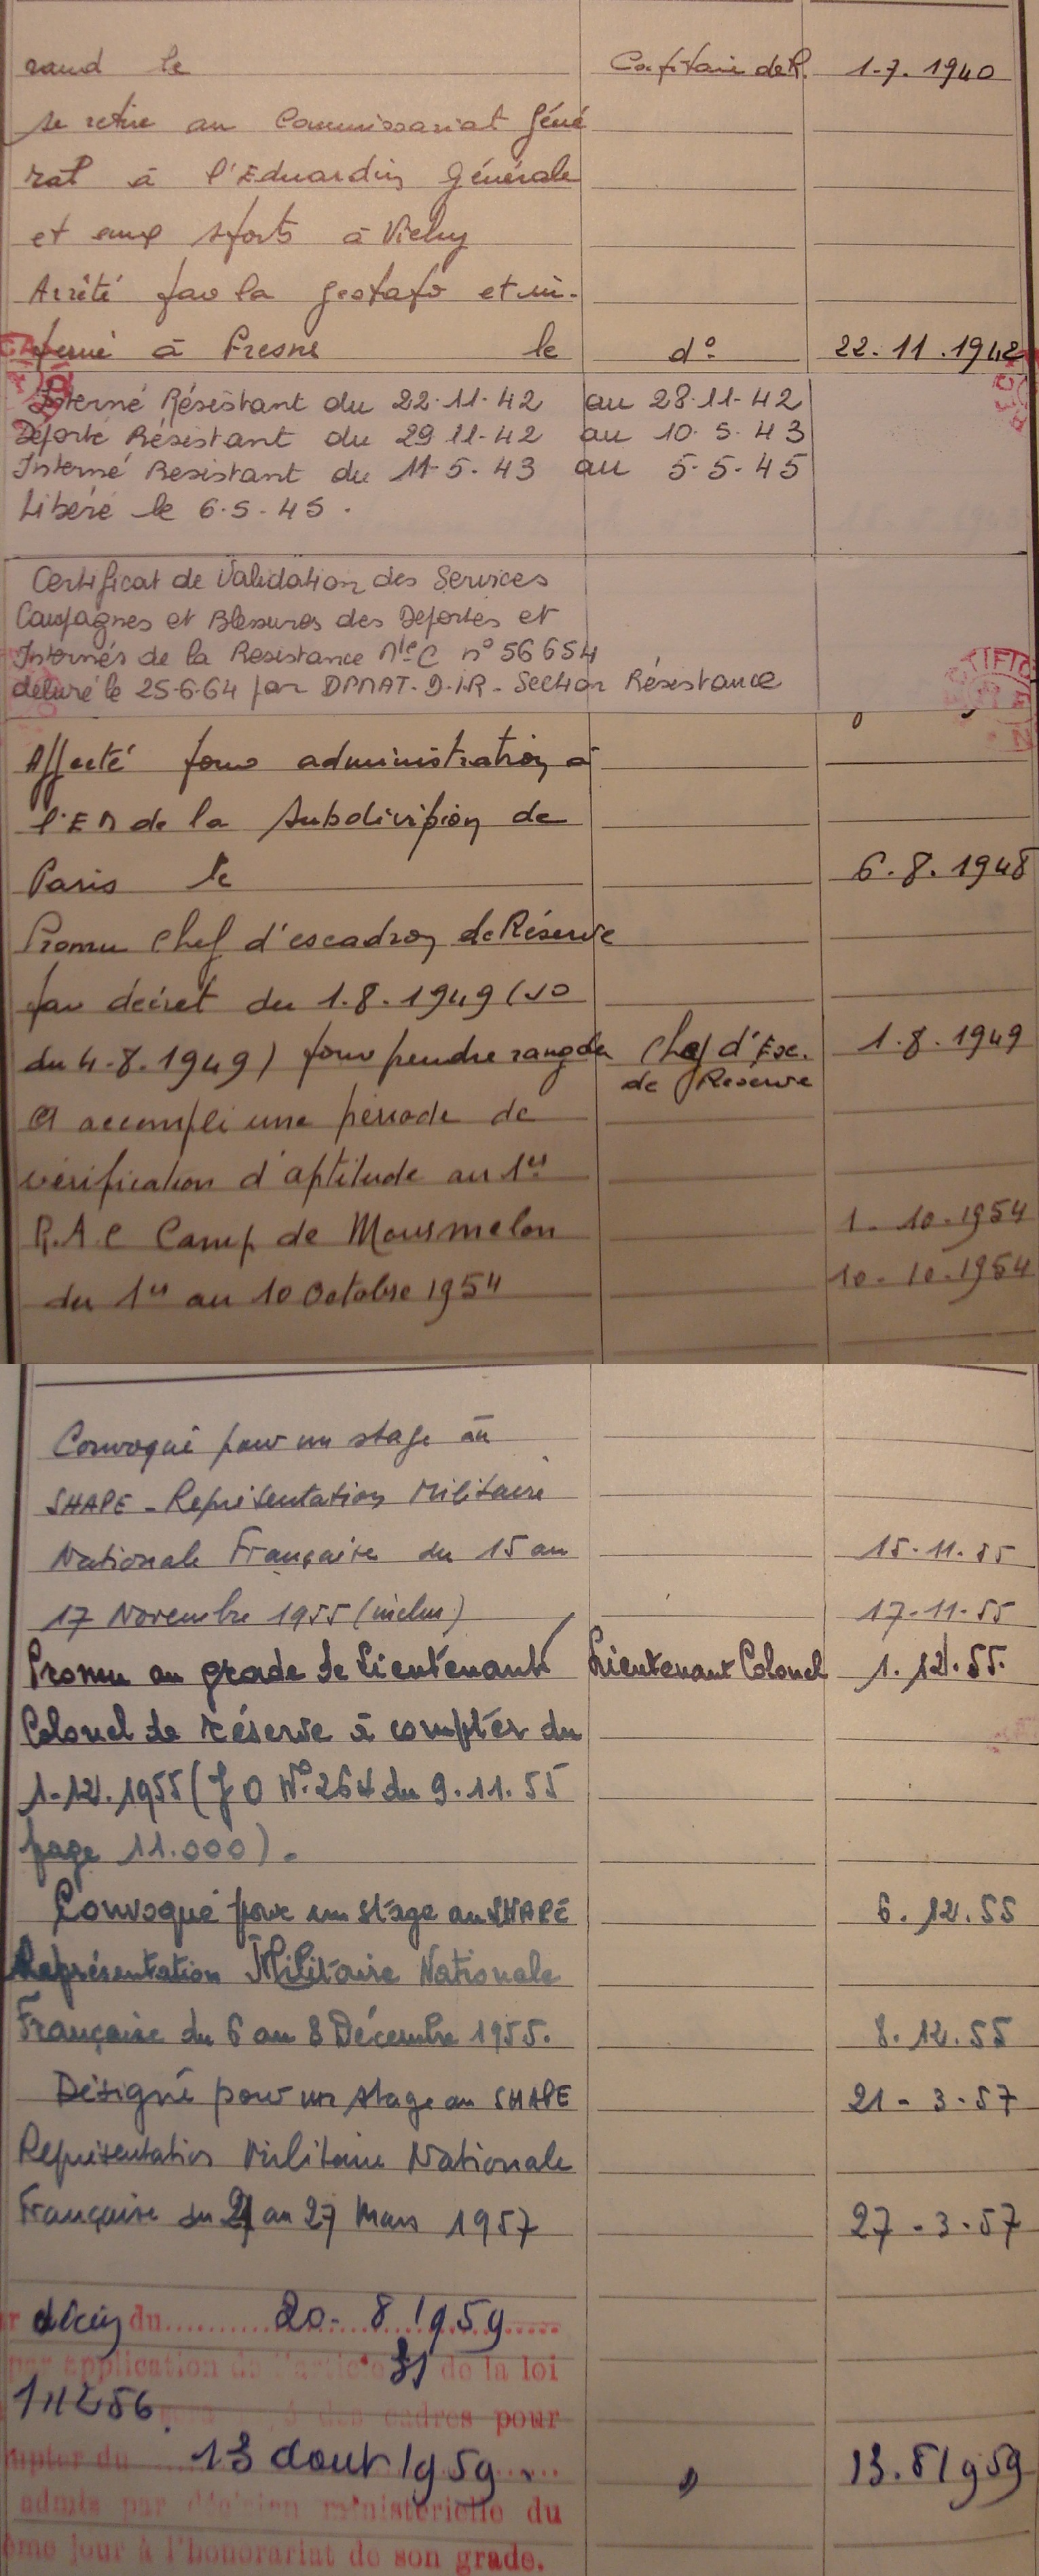 rand le Capitaine de R. 1-7. 1940
se retire au Commissariat Géné
ral à l'Education Générale
et aux sports à Vichy
Arrêté par la gestapo et in-
terné à Fresne le d° 22.11.1942
Interné Résistant du 22.11.42 au 28.11.42
Déporté Résistant du 29.11.42 au 10.5.43
Interné Resistant du 11.5.43 au 5.5.45
Libéré le 6.5.45.
Certificat de Validation des Services
Campagnes et Blessures des Déportés et
Internés de la Resistance Mle C n° 56654
délivré le 25-6-64 par DPMAT.D.I.R. Section Résistance
Affecté pour administration à
l'EM de la Subdivision de
Paris le 6.8.1948
Promu Chef d'escadron de Réserve
par decret du 1.8.1949 (JO
du 4.8.1949) pour prendre rang du Chef d'Esc. 1.8.1949
de Reserve
A accompli une période de
vérification d'aptitude au 1er
R.A.C Camp de Mourmelon 1-10.1954
du 1er au 10 Octobre 1954 10-10.1954
Convoqué pour un stage au
SHAPE - Représentation Militaire
Nationale Française du 15 au 15-11-55
17 Novembre 1955 (inclus) 17-11-55
Promu au grade de Lieutenant Lieutenant Colonel 1.12.55.
Colonel de réserve à compter du
1-12.1955 (JO N° 264 du 9.11.55
page 11.000).
Convoqué pour un stage au SHAPE 6.12.55
Représentation Militaire Nationale
Française du 6 au 8 Décembre 1955. 8.12.55
Désigné pour un stage au SHAPE 21-3-57
Représentation Militaire Nationale
Française du 21 au 27 Mars 1957 27-3-57
décis du 20-8 1959
par application de l'article 31 de la loi
1 12 56 des cadres pour
compter du 13 aout 1959 13.8 1959
admis par décision ministérielle du
ême jour à l'honorariat de son grade.